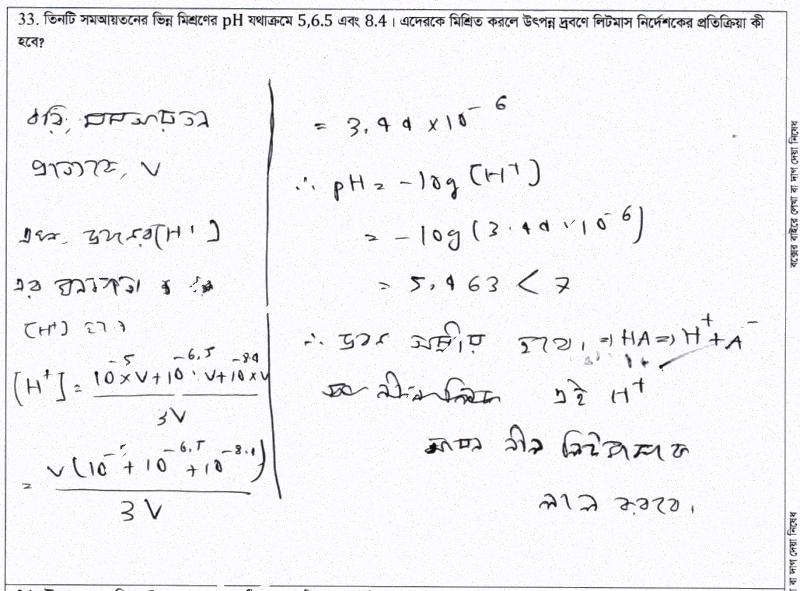 33. তিনটি সমআয়তনের ভিন্ন মিশ্রণের pH যথাক্রমে 5,6.5 এবং 8.4। এদেরকে মিশ্রিত করলে উৎপন্ন দ্রবণে লিটমাস নির্দেশকের প্রতিক্রিয়া কী
হবে?
ধরি,
V
[H⁺]
এর ঘনমাত্রা
[H⁺] হবে
[H⁺] = 10⁻⁵×V+10⁻⁶·⁵·V+10⁻⁸·⁴×V / 3V
= V(10⁻⁵+10⁻⁶·⁵+10⁻⁸·⁴) / 3V
= 3.44×10⁻⁶
∴ pH = -log[H⁺]
= -log(3.44×10⁻⁶)
= 5.463 < 7
∴ দ্রবণ অম্লীয় হবে। ⇒ HA ⇒ H⁺+A⁻
এই H⁺
নীল লিটমাসকে
লাল করবে।
বক্সের বাইরে লেখা বা দাগ দেয়া নিষেধ
বা দাগ দেয়া নিষেধ